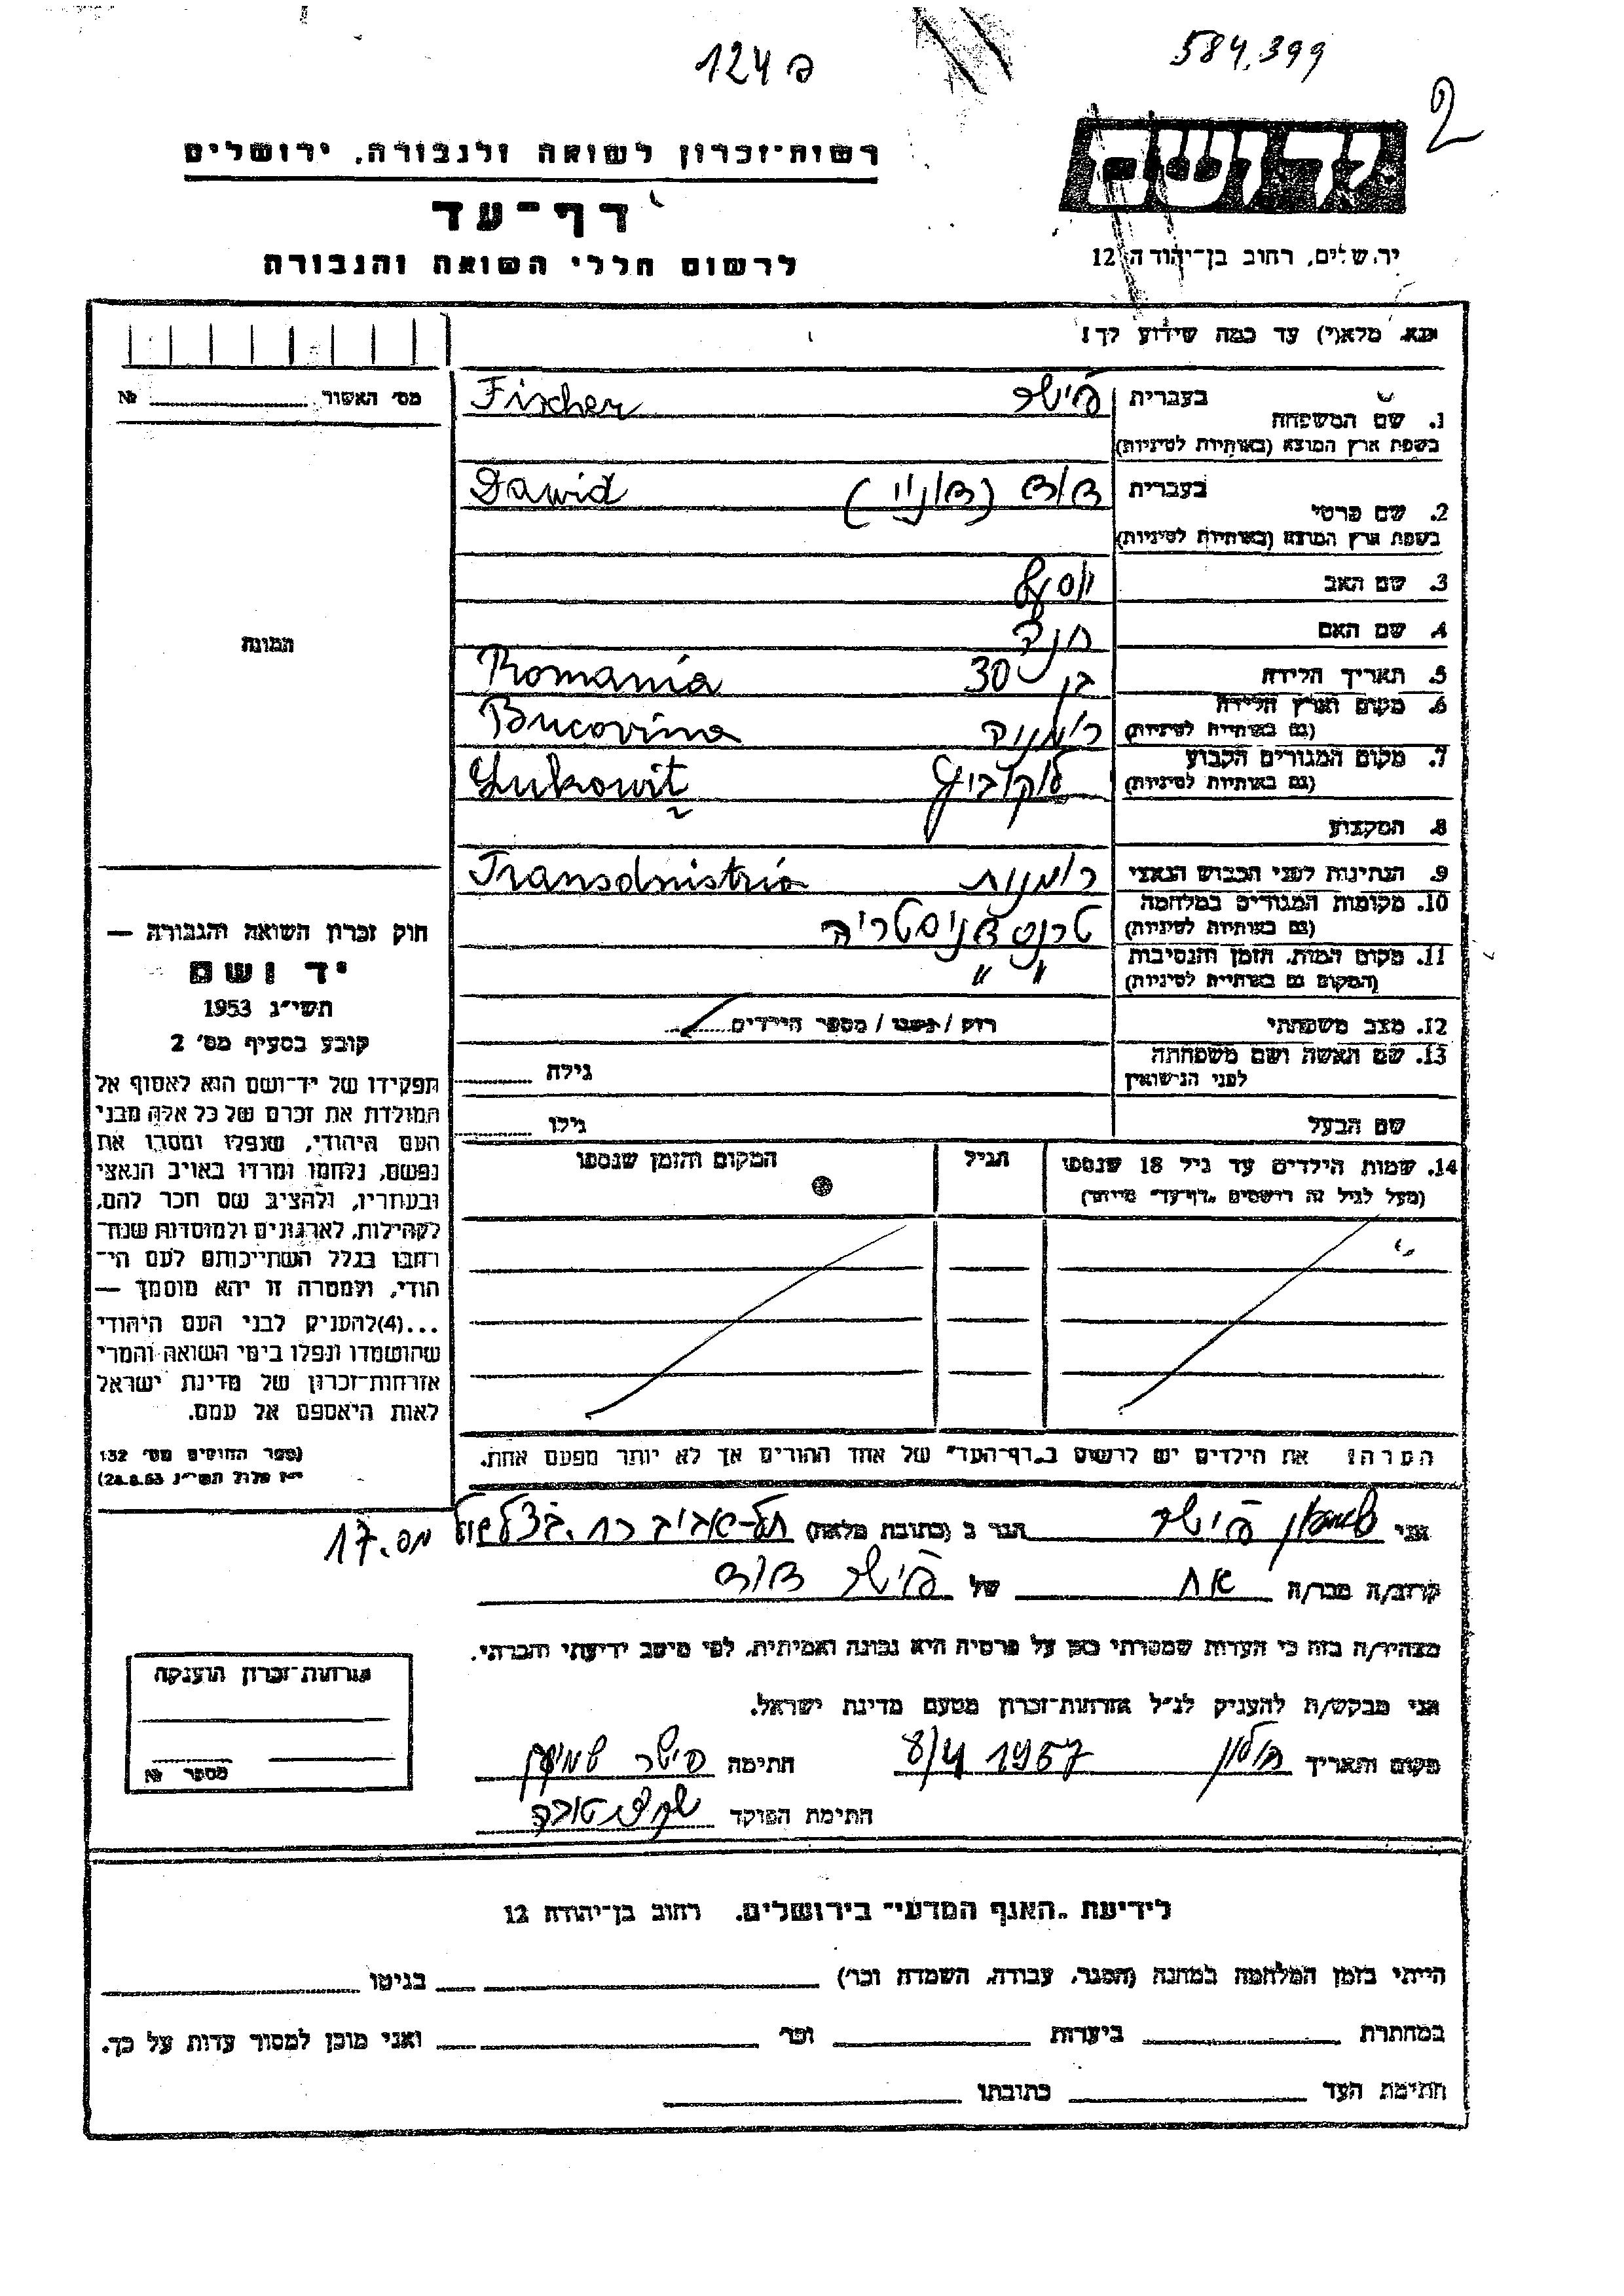 124 פ
584,399
2
רשות-זכרון לשואה ולגבורה, ירושלים
יד ושם
דף-עד
ירושלים, רחוב בן-יהודה 12
לרשום חללי השואה והגבורה
נא מלא(י) עד כמה שידוע לך!
מס' האשור № 
1. שם המשפחה בעברית פישר Fischer
בשפת ארץ המוצא (באותיות לטיניות)
2. שם פרטי בעברית דוד (דוניו) Dawid
בשפת ארץ המוצא (באותיות לטיניות)
3. שם האב יוסף
4. שם האם חנה
התמונה
5. תאריך הלידה בן 30 Romania
6. מקום וארץ הלידה רומניה Bucovina
(גם באותיות לטיניות)
7. מקום המגורים הקבוע לוקוביץ Lukowiț
(גם באותיות לטיניות)
8. המקצוע
9. הנתינות לפני הכבוש הנאצי רומנית Transdnistria
10. מקומות המגורים במלחמה טרנסדניסטריה
(גם באותיות לטיניות)
11. מקום המות, הזמן והנסיבות " "
(המקום גם באותיות לטיניות)
12. מצב משפחתי רווק / נשוי / מספר הילדים
13. שם האשה ושם משפחתה גילה
לפני הנישואין
שם הבעל גילו
14. שמות הילדים עד גיל 18 שנספו הגיל המקום והזמן שנספו
(מעל לגיל זה רושמים "דף-עד" מיוחד)
חוק זכרון השואה והגבורה —
יד ושם
תשי"ג 1953
קובע בסעיף מס' 2
תפקידו של יד-ושם הוא לאסוף אל
המולדת את זכרם של כל אלה מבני
העם היהודי, שנפלו ומסרו את
נפשם, נלחמו ומרדו באויב הנאצי
ובעוזריו, ולהציב שם וזכר להם,
לקהילות, לארגונים ולמוסדות שנח-
רבו בגלל השתייכותם לעם הי-
הודי, ולמטרה זו יהא מוסמך —
...(4)להעניק לבני העם היהודי
שהושמדו ונפלו בימי השואה והמרי
אזרחות-זכרון של מדינת ישראל
לאות היאספם אל עמם.
(ספר החוקים מס' 132
י"ז אלול תשי"ג 28.8.53)
הערה: את הילדים יש לרשום ב"דף-העד" של אחד ההורים אך לא יותר מפעם אחת.
אני שמעון פישר הגר ב (כתובת מלאה) תל-אביב רח. בצלאל מס. 17
קרוב/ה מכר/ה אח של פישר דוד
מצהיר/ה בזה כי העדות שמסרתי כאן על פרטיה היא נכונה ואמיתית, לפי מיטב ידיעתי והכרתי.
אני מבקש/ת להעניק לנ"ל אזרחות-זכרון מטעם מדינת ישראל.
מקום ותאריך חולון 8/4 1957 חתימה פישר שמעון
חתימת הפוקד
אזרחות-זכרון הוענקה
מספר №
לידיעת "האגף המדעי" בירושלים, רחוב בן-יהודה 12
הייתי בזמן המלחמה במחנה (הסגר, עבודה, השמדה וכו') בגיטו
במחתרת ביערות וכו' ואני מוכן למסור עדות על כך.
חתימת העד כתובתו